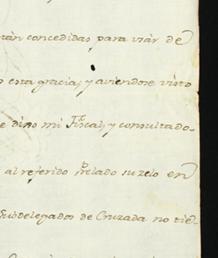 tàn concedidas para usàr de
esta gracia, y aviendose visto
dho mi Fiscal, y consultado-
al referido Prelado su zelo en
Subdelegados de Cruzada no tie-